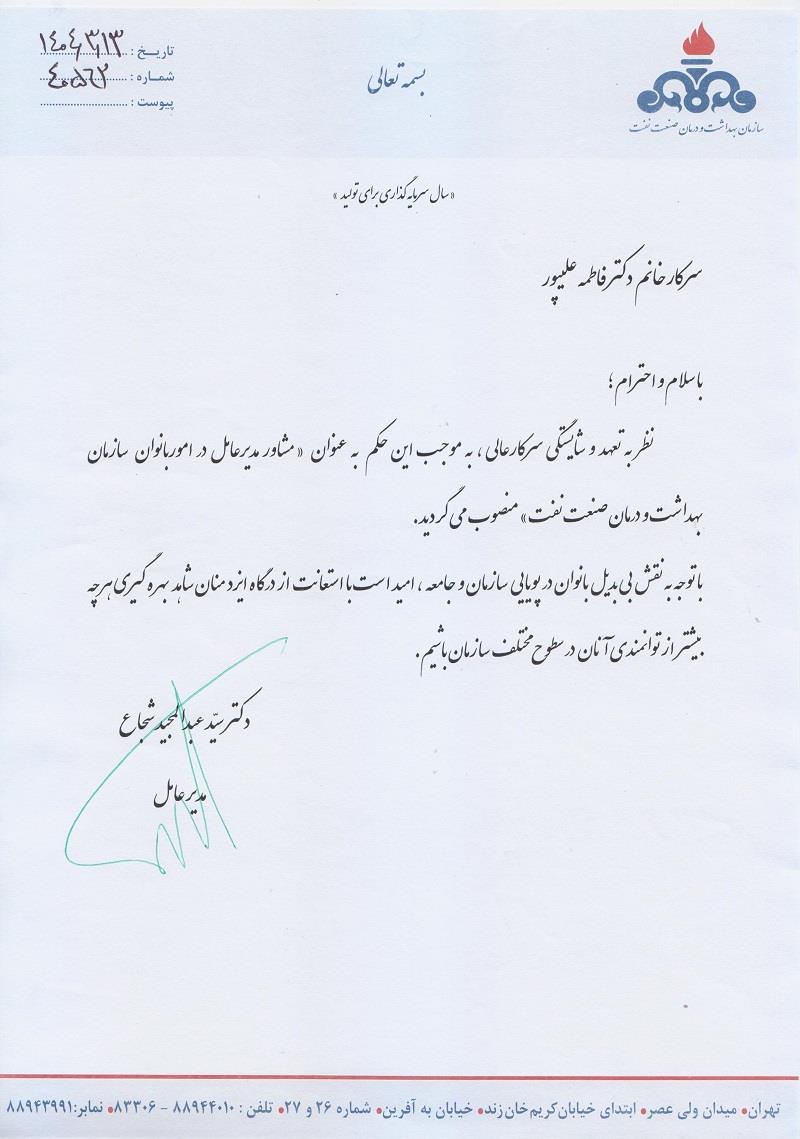 بسمه تعالی
سازمان بهداشت و درمان صنعت نفت
تاریـخ : ۱۴۰۴/۳/۱۳
شمـاره :
پیوست :
«سال سرمایه گذاری برای تولید»
سرکار خانم دکتر فاطمه علیپور
با سلام و احترام ؛
نظر به تعهد و شایستگی سرکارعالی ، به موجب این حکم به عنوان « مشاور مدیرعامل در امور بانوان سازمان
بهداشت و درمان صنعت نفت» منصوب می گردید.
با توجه به نقش بی بدیل بانوان در پویایی سازمان و جامعه ، امید است با استعانت از درگاه ایزد منان شاهد بهره گیری هرچه
بیشتر از توانمندی آنان در سطوح مختلف سازمان باشیم .
دکتر سیّد عبدالمجید شجاع
مدیرعامل
تهران• میدان ولی عصر• ابتدای خیابان کریم خان زند• خیابان به آفرین• شماره ۲۶ و ۲۷• تلفن : ۸۸۹۴۴۰۱۰ - ۸۳۳۰۶• نمابر:۸۸۹۴۳۹۹۱